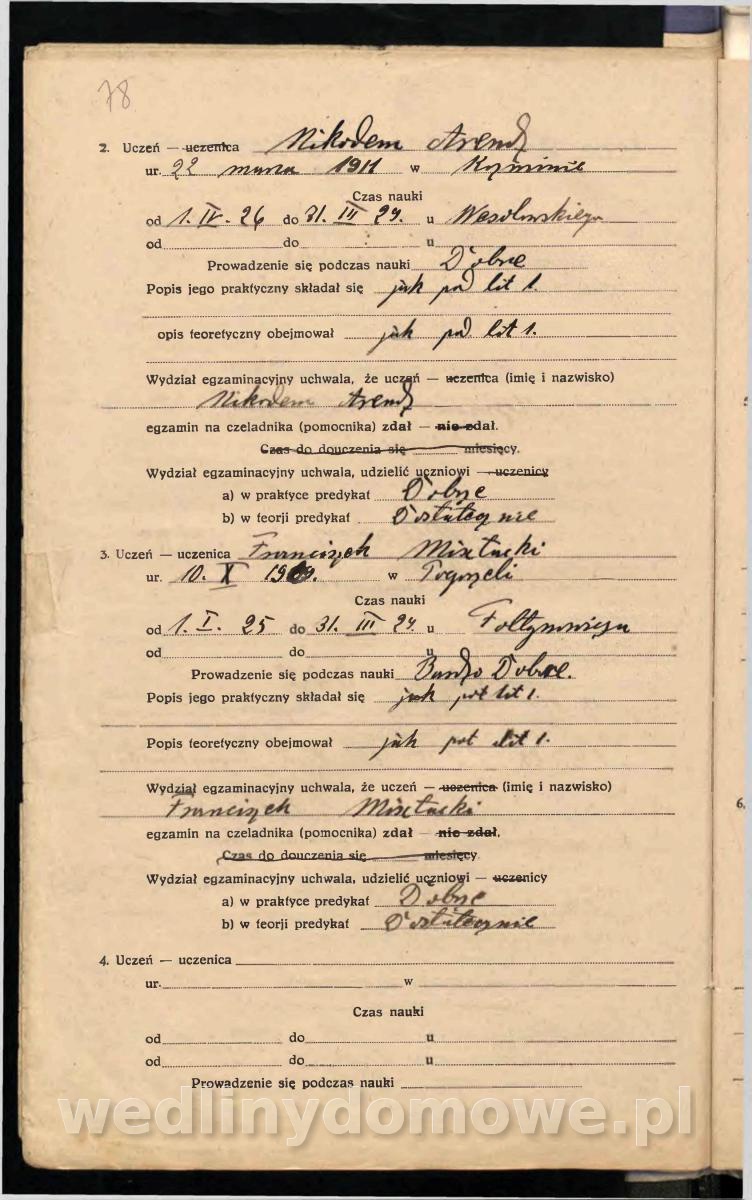 78
2. Uczeń — uczenica Nikodem Arend
ur. 22 marca 1911 w Koźminie
Czas nauki
od 1. IV. 26 do 31. III 29. u Wesołowskiego
od do u
Prowadzenie się podczas nauki Dobre
Popis jego praktyczny składał się jak pod lit 1.
opis teoretyczny obejmował jak pod lit 1.
Wydział egzaminacyjny uchwala, że uczeń — uczenica (imię i nazwisko)
Nikodem Arend
egzamin na czeladnika (pomocnika) zdał — nie zdał.
Czas do douczenia się miesięcy.
Wydział egzaminacyjny uchwala, udzielić uczniowi — uczenicy
a) w praktyce predykat Dobrze
b) w teorji predykat Dostatecznie
3. Uczeń — uczenica Franciszek
ur. 10. X 1909. w Pogorzeli
Czas nauki
od 1. I. 25 do 31. III 29 u Foltynowicza
od do u
Prowadzenie się podczas nauki Bardzo Dobre.
Popis jego praktyczny składał się jak pot lit 1.
Popis teoretyczny obejmował jak pot lit 1.
Wydział egzaminacyjny uchwala, że uczeń — uczenica (imię i nazwisko)
Franciszek
egzamin na czeladnika (pomocnika) zdał — nie zdał.
Czas do douczenia się miesięcy
Wydział egzaminacyjny uchwala, udzielić uczniowi — uczenicy
a) w praktyce predykat Dobrze
b) w teorji predykat Dostatecznie
4. Uczeń — uczenica
ur. w
Czas nauki
od do u
od do u
Prowadzenie się podczas nauki
wedlinydomowe.pl
6.